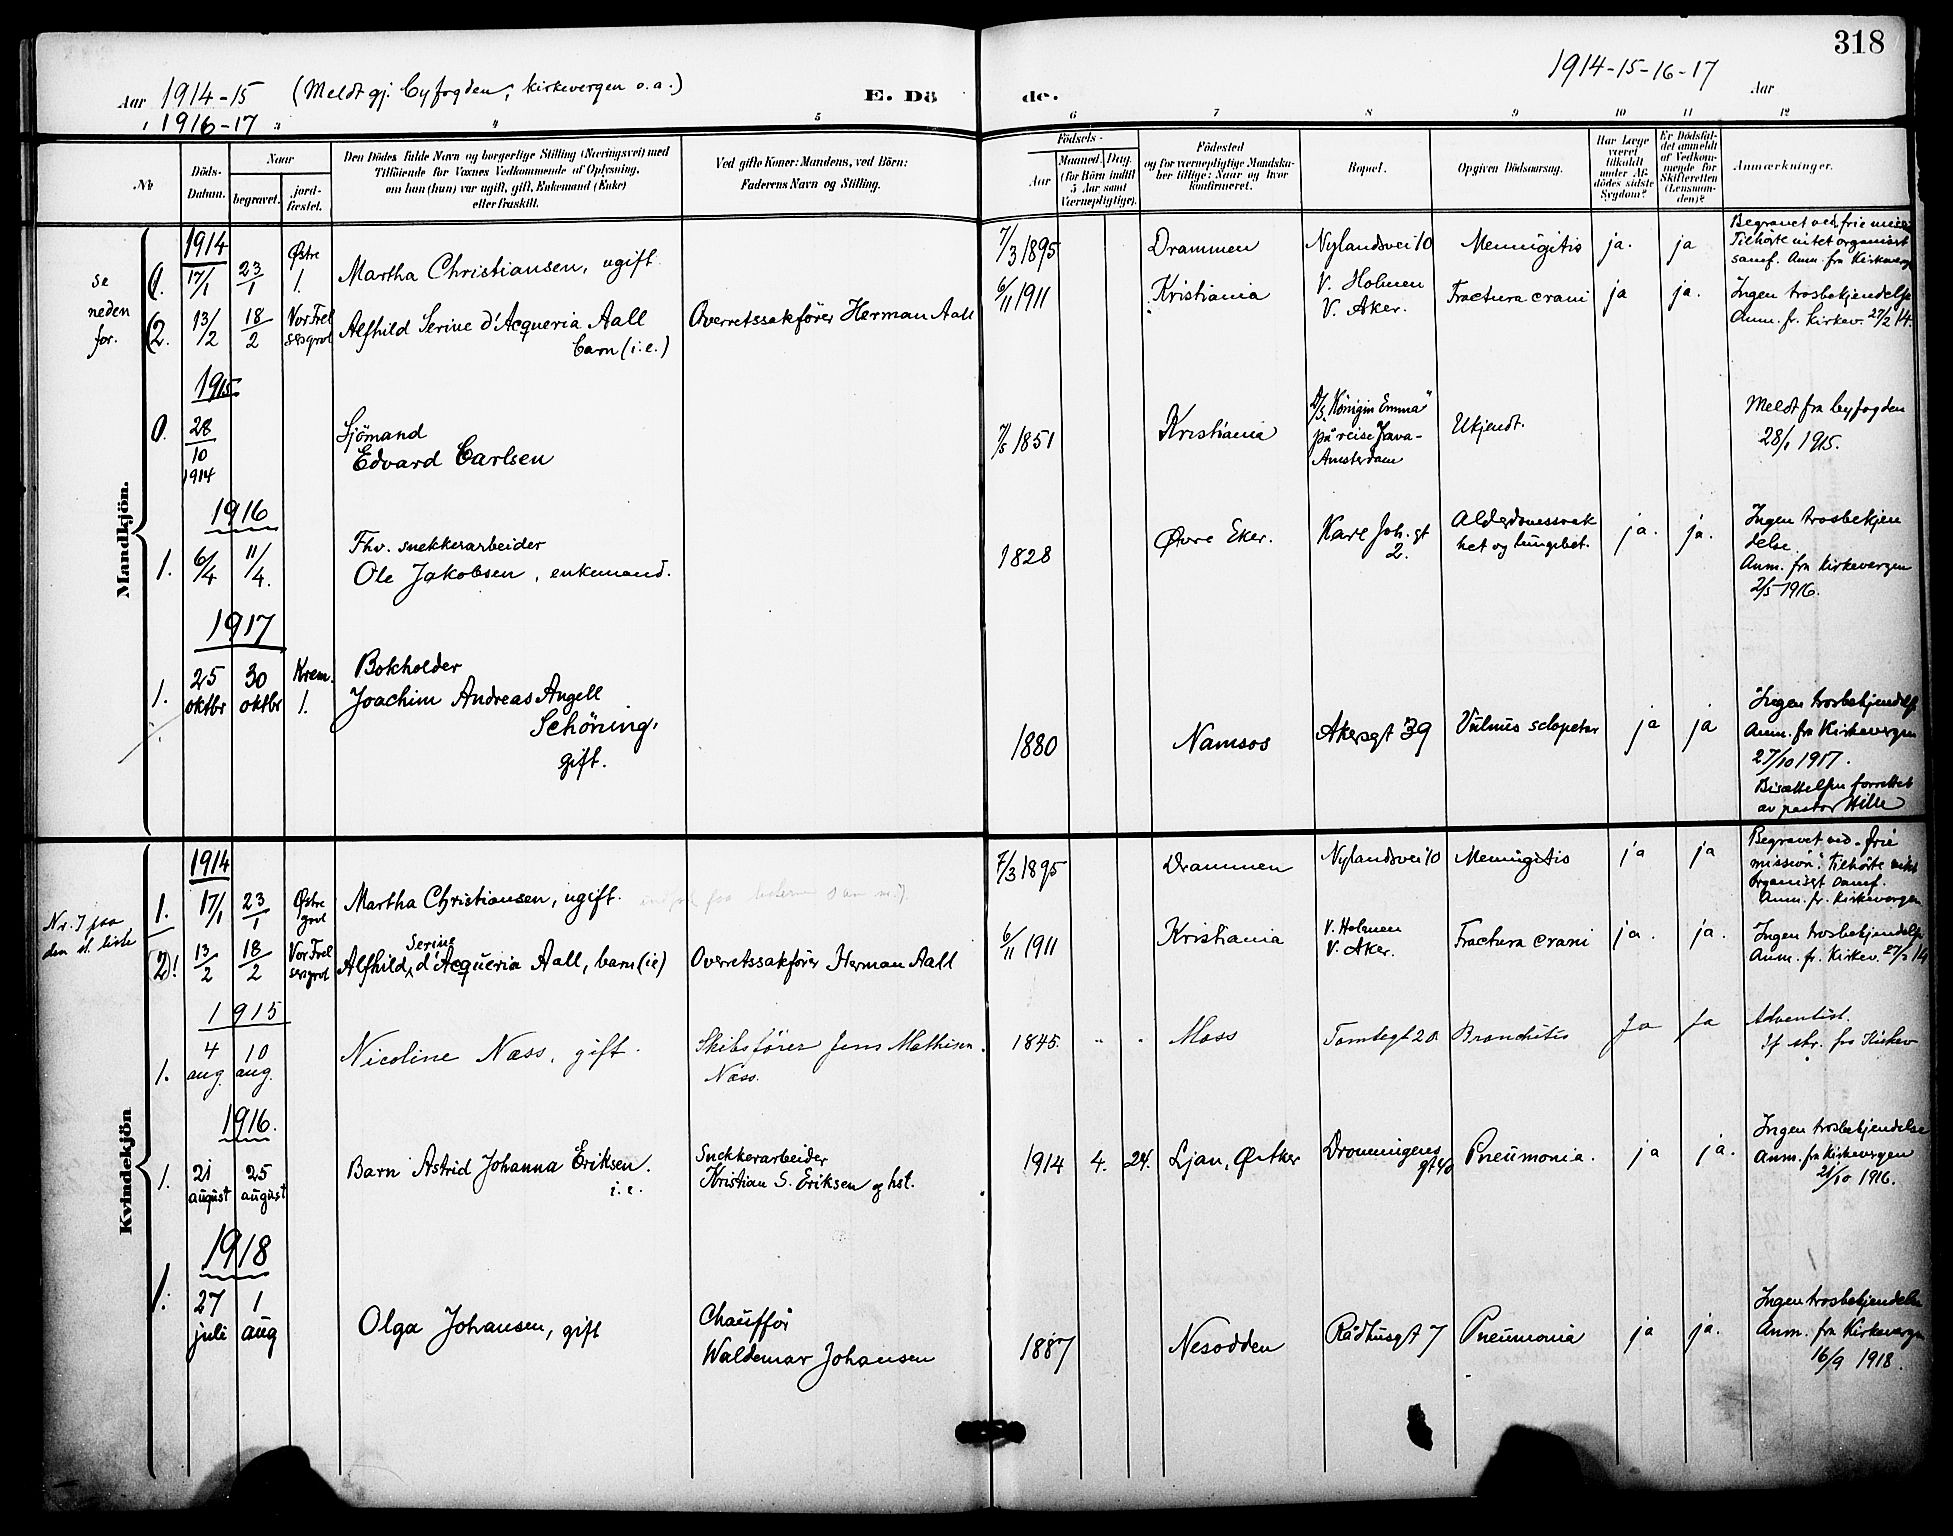 318
Aar 1914-15 (Meldt gj. byfogden, kirkevergen o.a.)
1916-17
E. Dö
de.
1914-15-16-17
Aar
3 4 5
6 7 8 9 10 11 12
No
Döds-Datum.
Naar
begravet.
jord-fæstet.
Den Dödes fulde Navn og borgerlige Stilling (Næringsvei) med
Tilföiende for Voxnes Vedkommende af Oplysning,
om han (hun) var ugift, gift, Enkemand (Enke)
eller fraskilt.
Ved gifte Koner: Mandens, ved Börn:
Faderens Navn og Stilling.
Födsels-
Aar
Maaned. Dag.
(for Börn indtil
5 Aar samt
Værnepligtige).
Födested
og for værnepligtige Mandska-
ber tillige: Naar og hvor
konfirmeret.
Bopæl.
Opgiven Dödsaarsag.
Har Læge
været
tilkaldt
under Af-
dödes sidste
Sygdom?
Er Dödsfal-
det anmeldt
af Vedkom-
mende for
Skifteretten
(Lensman-
den)?
Anmærkninger.
Mandkjön.
se
neden
for.
1914
1. 17/1 23/1 Østre 1. Martha Christiansen, ugift. 7/3 1895 Drammen Nylandsvei 10 Meningitis ja. ja
Begravet ved frie
Tilhörte intet organisert
samf. Anm. fra Kirkeverg
2. 13/2 18/2 Vor Frel
sersgrvl Alfhild Serine d'Acqueria Aall
barn (i.e.) Overretssakfører Herman Aall 6/11 1911 Kristiania V. Holmen
V. Aker. Fractura crani ja ja.
Ingen trosbekjendelse
Anm. fr. kirkev. 27/2 14.
1915
0. 28/10
1914 Sjömand
Edvard Carlsen 7/5 1851 Kristiania D/S "Königin Emma"
på reise Java-
Amsterdam Ukjendt.
Meldt fra byfogden
28/1 1915.
1916
1. 6/4 11/4. Fhv. snekkerarbeider
Ole Jakobsen, enkemand. 1828 Øvre Eker. Karl Joh. gt
2. Alderdomssvak
het og lungebet. ja. ja.
Ingen trosbekjen
delse.
Anm. fra kirkevergen
2/5 1916.
1917
1. 25
oktbr 30
oktbr Krem.
1. Bokholder
Joachim Andreas Angell
Schöning,
gift. 1880 Namsos Akersgt 39 Vulnus sclopetar ja ja
Ingen trosbekjendelse
Anm. fra Kirkevergen
27/10 1917.
Bisættelsen forrettet
av pastor Hille
Kvindekjön
1914
1. 17/1 23/1 Østre
grvl Martha Christiansen, ugift. 7/3 1895 Drammen Nylandsvei 10 Meningitis ja ja
Begravet ved "frie
mission". Tilhörte intet
organisert samf.
Anm. fr. kirkevergen
Nr. 7 paa
den st. liste
(2)! 13/2 18/2 Vor Frel
sersgrvl Alfhild, Serine d'Acqueria Aall, barn (ie) Overretssakfører Herman Aall 6/11 1911 Kristiania V. Holmen
V. Aker. Fractura crani ja. ja.
Ingen trosbekjendelse
Anm. fr. kirkev. 27/2 14
1915
1. 4
aug. 10
aug. Nicoline Næss, gift. Skibsförer Jens Mathisen
Næss. 1845. " " Moss Tomtegt 20 Bronchitis Ja Ja
Adventist.
If. skr. fra Kirkev
1916.
1. 21
august 25
august Barn Astrid Johanna Eriksen.
i.e. Snekkerarbeider
Kristian S. Eriksen og hst. 1914 4. 24. Ljan, Østker Dronningens
gt 40 Pneumonia. ja ja.
Ingen trosbekjendelse
Anm. fra kirkevergen
21/10 1916.
1918
1. 27
juli 1
aug Olga Johansen, gift Chauffør
Waldemar Johansen 1887 Nesodden Rådhusgt 7 Pneumonia ja ja.
Ingen trosbekjendelse
Anm. fra Kirkevergen
16/9 1918.